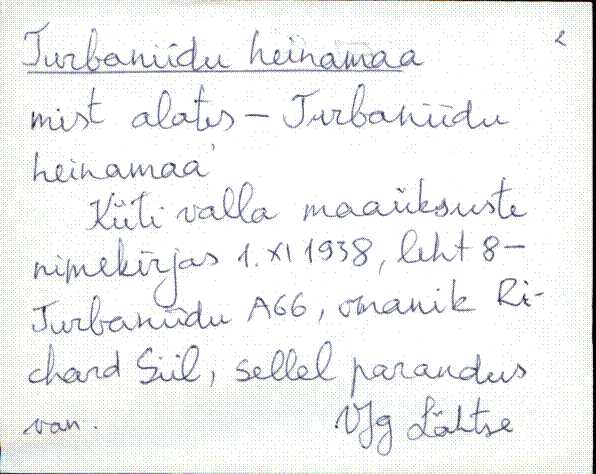 2
Turbaniidu heinamaa
mist alates – Turbaniidu
heinamaa
Kiiti valla maaüksuste
nimekirjas 1. XI 1938, leht 8 –
Turbaniidu A66, omanik Ri-
chard Siil, sellel parandus
van. VJg Lähtse